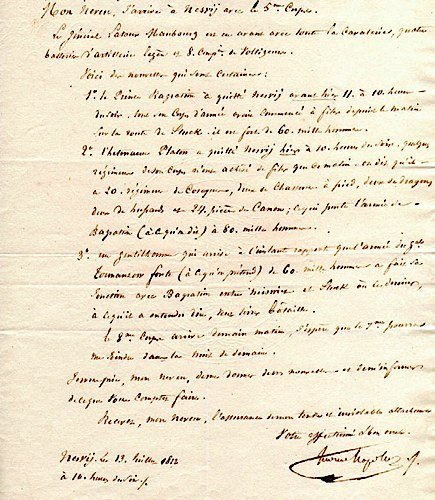 Mon Neveu, J'arrive à Nesvij avec le 5me Corps.
Le général Latour Maubourg est en avant avec toute la Cavalerie, quatre
batteries d'artillerie légère et 8. Compies de Voltigeurs.
Voici des nouvelles qui sont certaines:
1o. le Prince Bagration a quitté Nesvij avant hier 11. à 10. heures
du soir. tout son Corps d'armée avait commencé à filer depuis le matin
sur la route de Sluck. il est fort de 60. mille hommes.
2o. l'hetmann Platow a quitté Nesvij hier à 10. heures du soir. quelques
régimens de son Corps n'ont achevé de filer que ce matin. on dit qu'il
a 20. régimens de Cosaques, deux de Chasseurs à pied, deux de dragons
deux de husards et 24. pièces de Canon; ce qui porte l'armée de
Bagration (à ce qu'on dit) à 80. mille hommes.
3o. un gentilhomme qui arrive à l'instant rapporte que l'armée du gal
Tormanzow forte (à ce qu'on prétend) de 60. mille hommes a fait sa
jonction avec Bagration entre et Sluck où ce dernier,
à ce qu'il a entendu dire, veut livrer bataille.
le 8me Corps arrive demain matin, j'espère que le 7me pourra
me joindre dans la nuit de demain.
Je vous prie, mon neveu, de me donner de vos nouvelles et de m'informer
de ce que vous comptez faire.
Recevez, mon Neveu, l'assurance de mon tendre et inviolable attachement
Votre affectionné oncle
Nesvij le 13. Juillet 1812
à 10. heures du soir